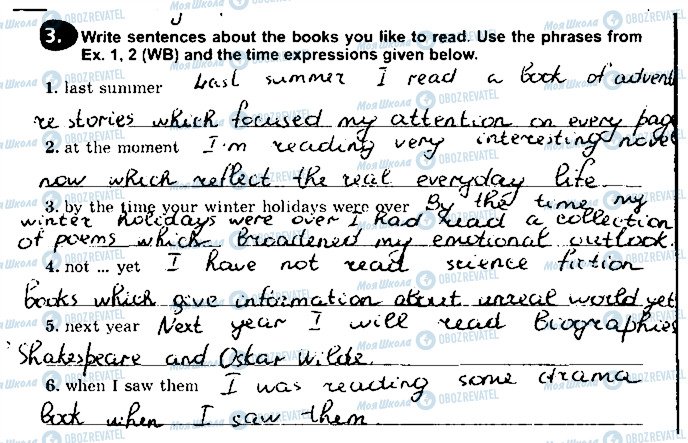 3. Write sentences about the books you like to read. Use the phrases from
Ex. 1, 2 (WB) and the time expressions given below.
1. last summer Last summer I read a book of advent
re stories which focused my attention on every page
2. at the moment I'm reading very interesting novel
now which reflect the real everyday life.
3. by the time your winter holidays were over By the time my
winter holidays were over I had read a collection
of poems which broadened my emotional outlook.
4. not ... yet I have not read science fiction
books which give information about unreal world yet
5. next year Next year I will read biographies
Shakespeare and Oskar Wilde.
6. when I saw them I was reading some drama
book when I saw them.